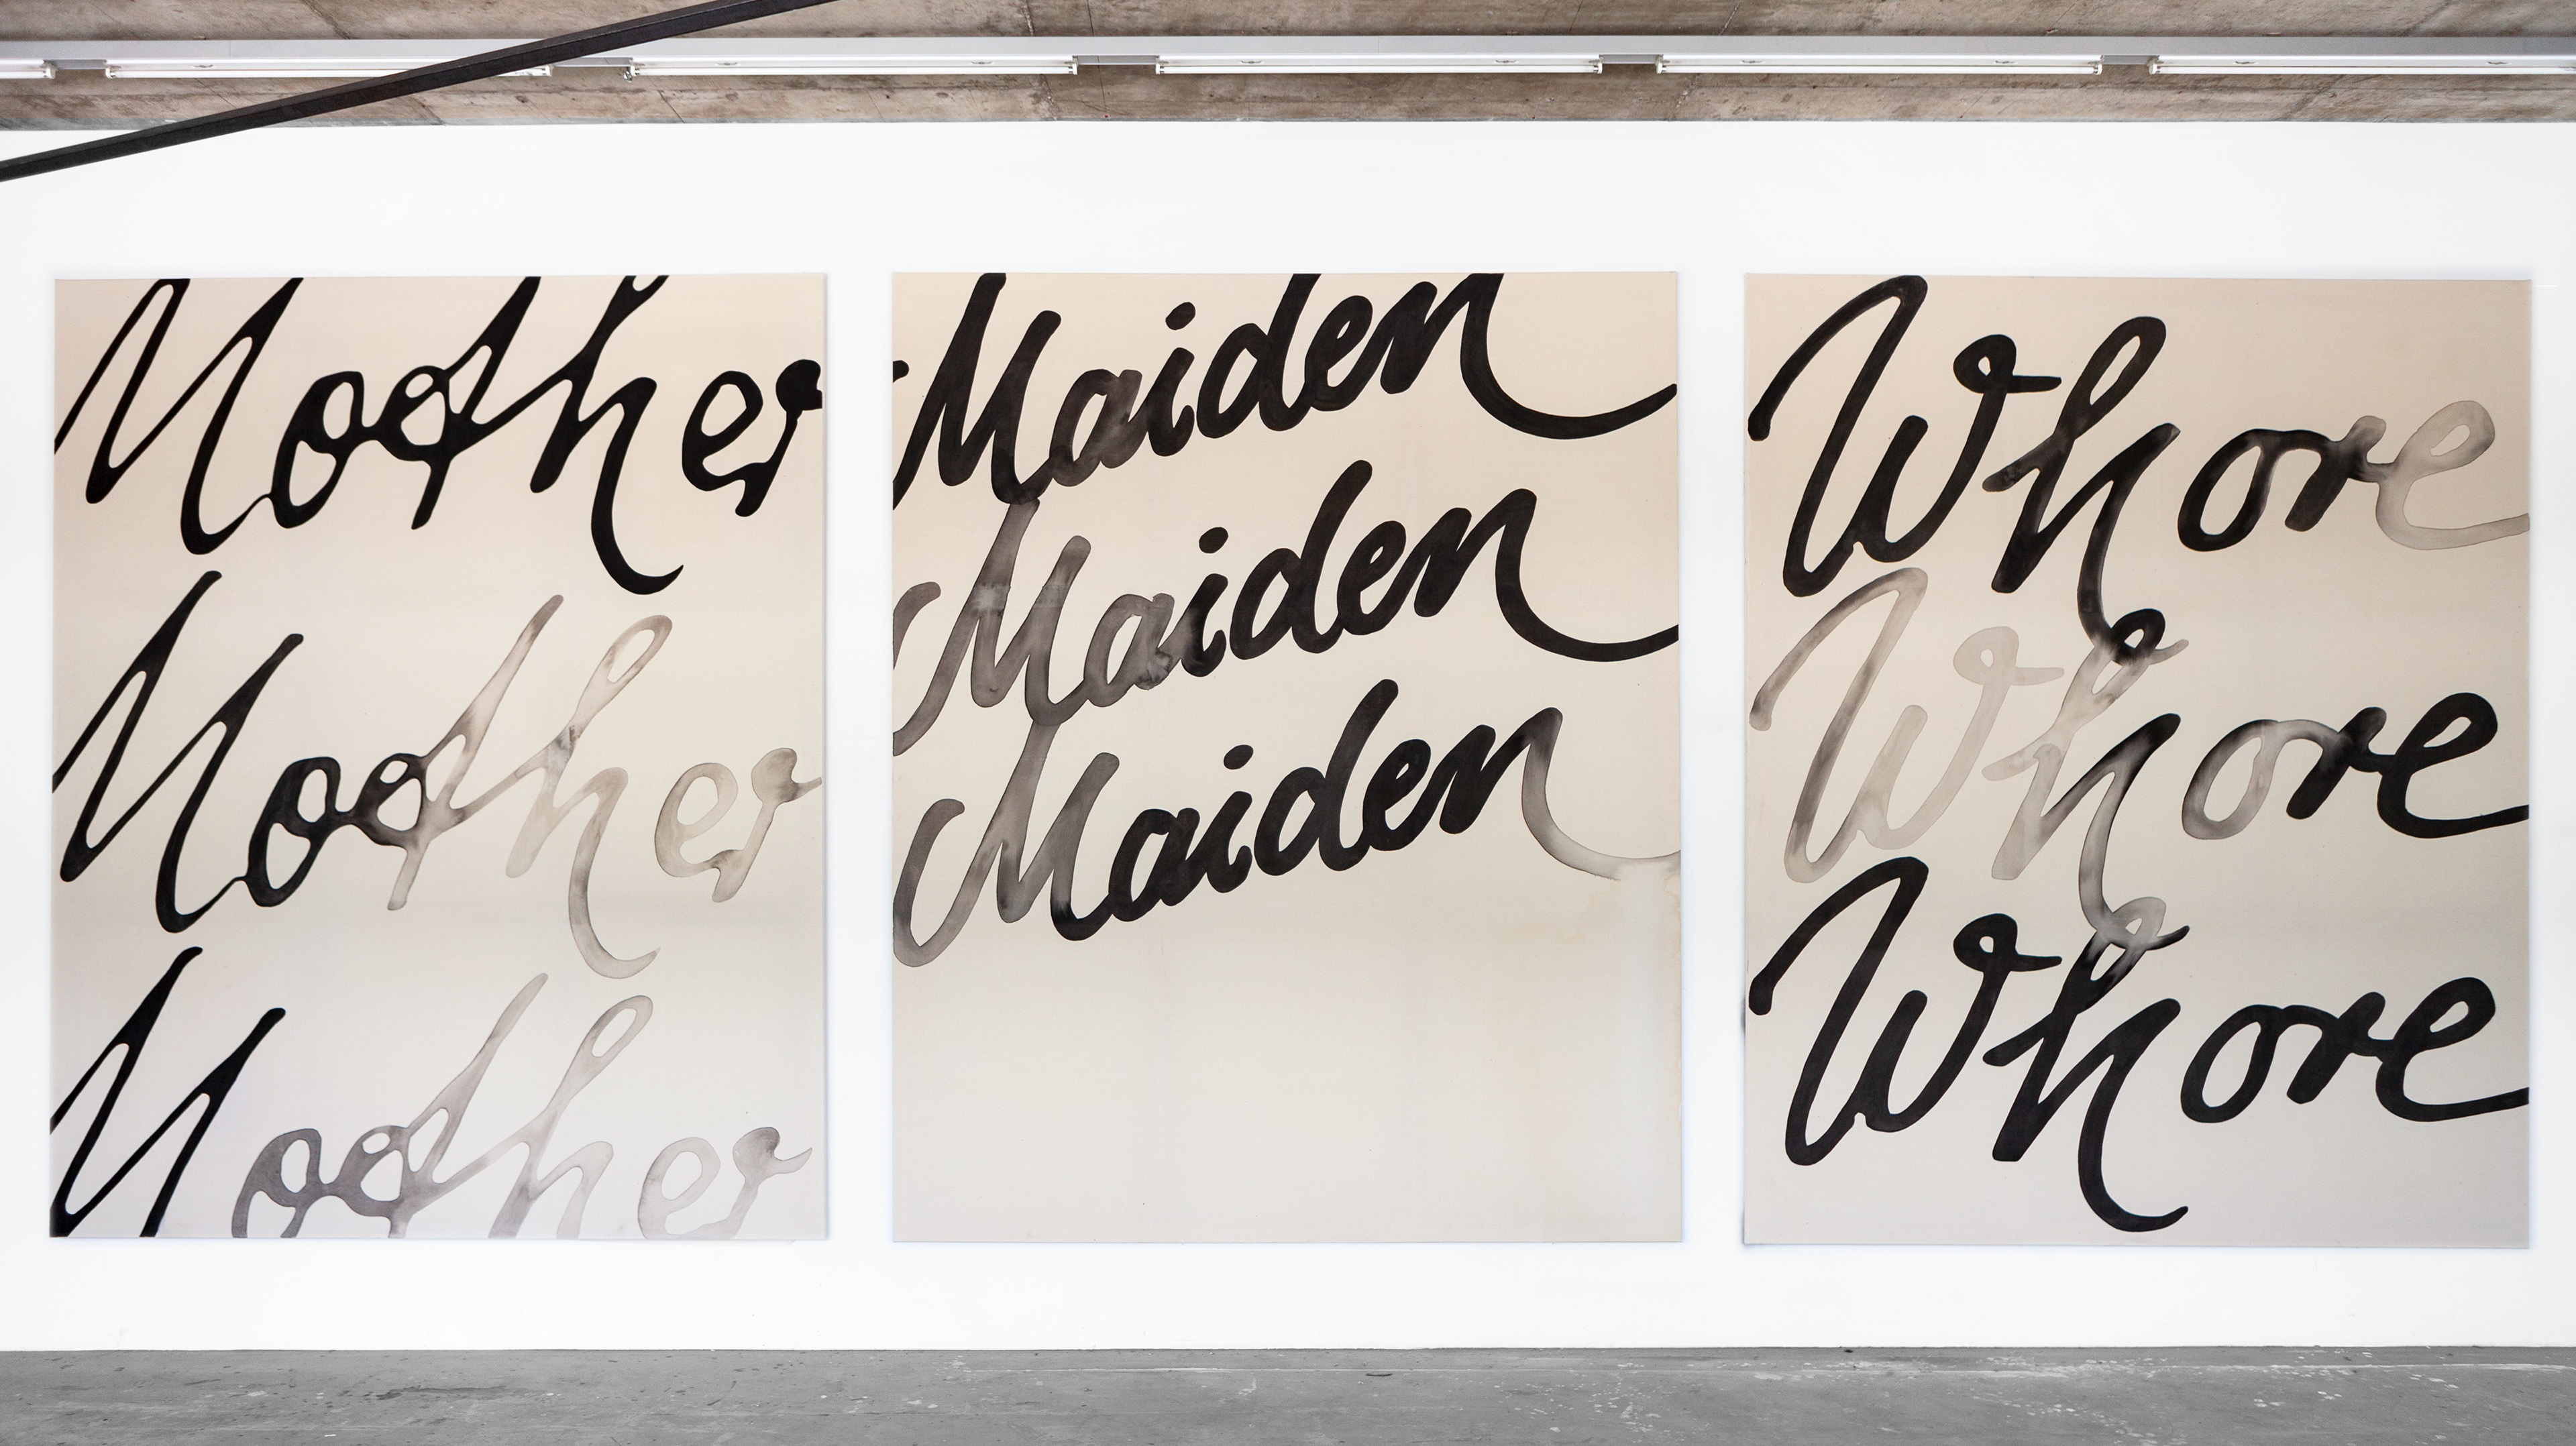 Mother
Mother
Mother
Maiden
Maiden
Maiden
Whore
Whore
Whore